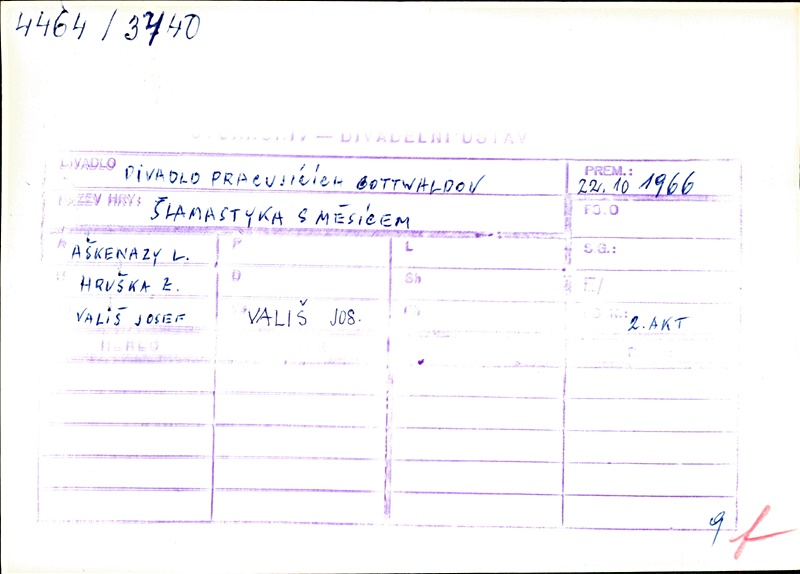 4464 / 3740
DIVADELNÍ ÚSTAV
DIVADLO DIVADLO PRACUJÍCÍCH GOTTWALDOV PREM.: 22. 10 1966
NÁZEV HRY: ŠLAMASTYKA S MĚSÍCEM FO.O
A AŠKENAZY L. P L S.G.:
HRUŠKA Z. D Sh
VALIŠ JOSEF VALIŠ JOS. 2. AKT
9